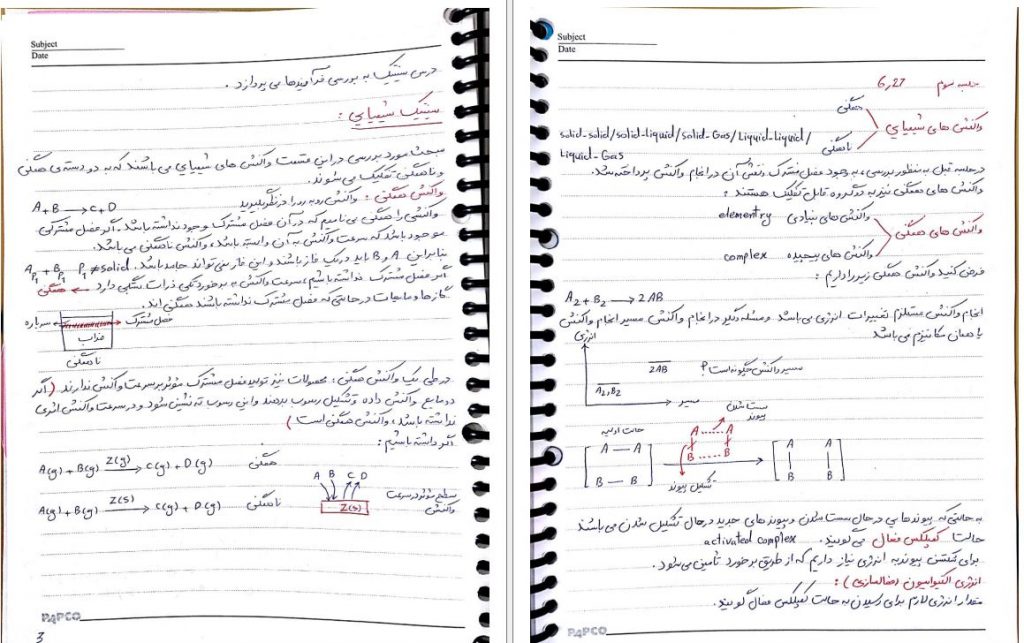 Subject
Date
درس سینتیک به بررسی فرآیندها می پردازد.
سینتیک شیمیایی:
مبحث مورد بررسی در این قسمت واکنش های شیمیایی می باشند که به دو دسته ی همگنی
و ناهمگنی تفکیک می شوند.
واکنش همگنی: واکنش رو به رو را در نظر بگیرید A + B → C + D
واکنشی را همگنی می نامیم که در آن فصل مشترک وجود نداشته باشد. اگر فصل مشترکی
موجود باشد که سرعت واکنش به آن وابسته باشد، واکنش ناهمگنی می باشد.
بنابراین A و B باید در یک فاز باشند و این فاز نمی تواند جامد باشد. A_P1 + B_P1 P1 ≠ solid
اگر فصل مشترک نداشته باشیم، سرعت واکنش به برخورد تکی ذرات بستگی دارد ← همگنی
گازها و مایعات در حالتی که فصل مشترک نداشته باشند همگنی اند.
سرباره
فصل مشترک
مذاب
ناهمگنی
در طی یک واکنش همگنی، محصولات نیز تولید فصل مشترک موثر بر سرعت واکنش ندارند (اگر
دو مایع واکنش داده و تشکیل رسوب بدهند و این رسوب ته نشین شود و در سرعت واکنش اثری
نداشته باشد، واکنش همگنی است)
اگر داشته باشیم:
A(g) + B(g) Z(g)→ C(g) + D(g) همگنی
A B C D
A(g) + B(g) Z(s)→ C(g) + D(g) ناهمگنی
Z(s)
سطح موثر در سرعت
واکنش
PAPCO
3
Subject
Date
جلسه سوم 6,27
واکنش های شیمیایی
همگنی
ناهمگنی
solid-solid/solid-Liquid/solid-Gas/Liquid-Liquid/
Liquid-Gas
در جلسه قبل به منظور بررسی، به وجود فصل مشترک و نقش آن در انجام واکنش پرداخته شد.
واکنش های همگنی نیز به دو گروه قابل تفکیک هستند:
واکنش های همگنی
واکنش های بنیادی elementry
واکنش های پیچیده complex
فرض کنید واکنش همگنی زیر را داریم:
A2 + B2 → 2AB
انجام واکنش مستلزم تغییرات انرژی می باشد و مسئله دیگر در انجام واکنش مسیر انجام واکنش
یا همان مکانیزم می باشد
انرژی
2AB
A2,B2
مسیر
مسیر واکنش چگونه است؟
حالت اولیه
سست شدن
پیوند
A — A
B — B
A ...... A
B ...... B
تشکیل پیوند
A A
B B
به حالتی که پیوندهایی در حال سست شدن و پیوند های جدید در حال تشکیل شدن می باشند
حالت کمپلکس فعال می گویند. activated complex
برای شکستن پیوند به انرژی نیاز داریم که از طریق برخورد تامین می شود.
انرژی اکتیواسیون (فعالسازی):
مقدار انرژی لازم برای رسیدن به حالت کمپلکس فعال گویند.
PAPCO